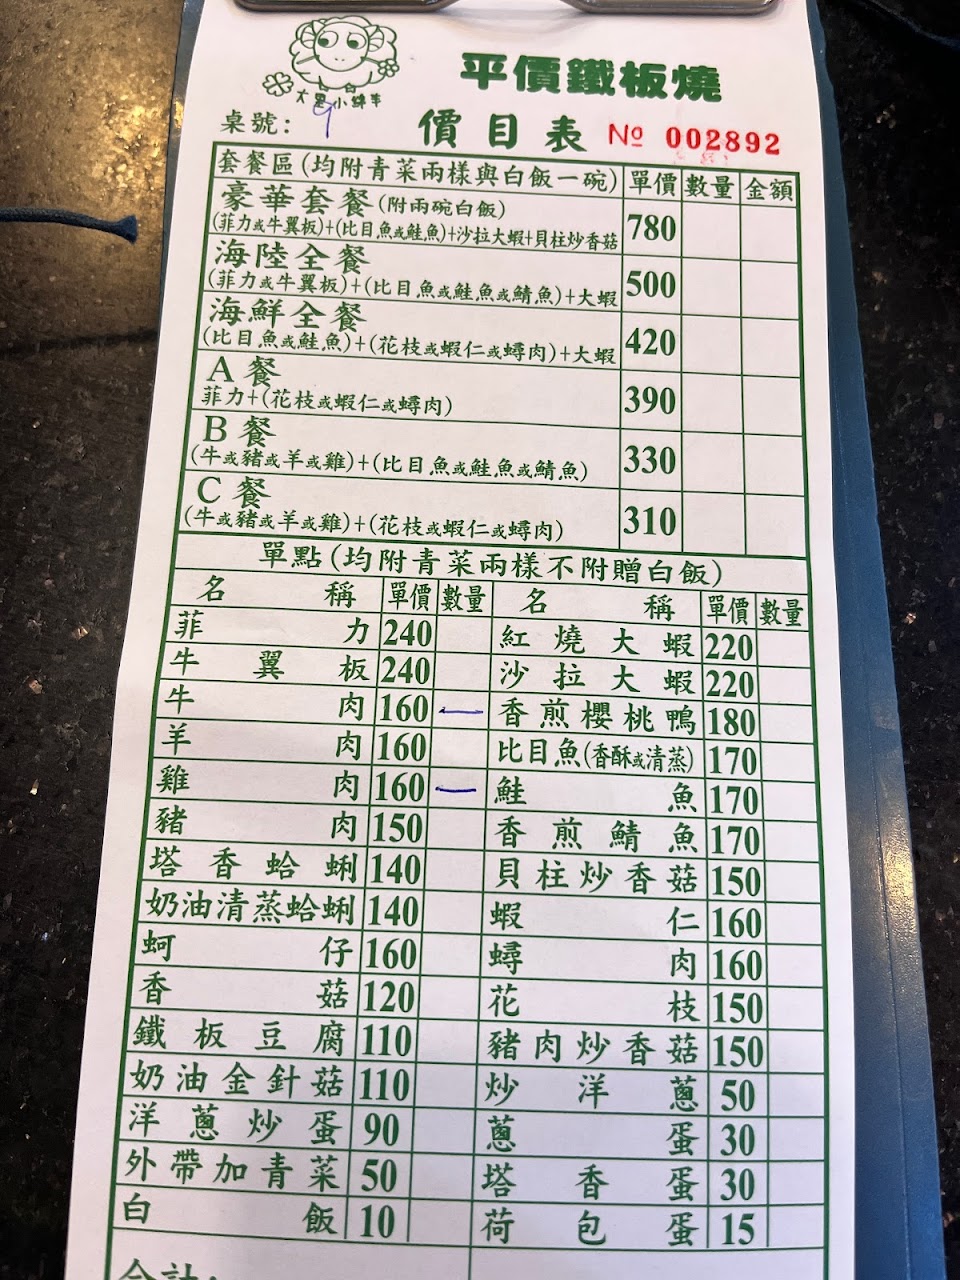 大里小綿羊
平價鐵板燒
桌號: 9
價目表 № 002892
套餐區(均附青菜兩樣與白飯一碗) 單價 數量 金額
豪華套餐(附兩碗白飯)
(菲力或牛翼板)+(比目魚或鮭魚)+沙拉大蝦+貝柱炒香菇 780
海陸全餐
(菲力或牛翼板)+(比目魚或鮭魚或鯖魚)+大蝦 500
海鮮全餐
(比目魚或鮭魚)+(花枝或蝦仁或蟳肉)+大蝦 420
A餐
菲力+(花枝或蝦仁或蟳肉) 390
B餐
(牛或豬或羊或雞)+(比目魚或鮭魚或鯖魚) 330
C餐
(牛或豬或羊或雞)+(花枝或蝦仁或蟳肉) 310
單點(均附青菜兩樣不附贈白飯)
名稱 單價 數量 名稱 單價 數量
菲力 240 紅燒大蝦 220
牛翼板 240 沙拉大蝦 220
牛肉 160 一 香煎櫻桃鴨 180
羊肉 160 比目魚(香酥或清蒸) 170
雞肉 160 一 鮭魚 170
豬肉 150 香煎鯖魚 170
塔香蛤蜊 140 貝柱炒香菇 150
奶油清蒸蛤蜊 140 蝦仁 160
蚵仔 160 蟳肉 160
香菇 120 花枝 150
鐵板豆腐 110 豬肉炒香菇 150
奶油金針菇 110 炒洋蔥 50
洋蔥炒蛋 90 蔥蛋 30
外帶加青菜 50 塔香蛋 30
白飯 10 荷包蛋 15
合計: